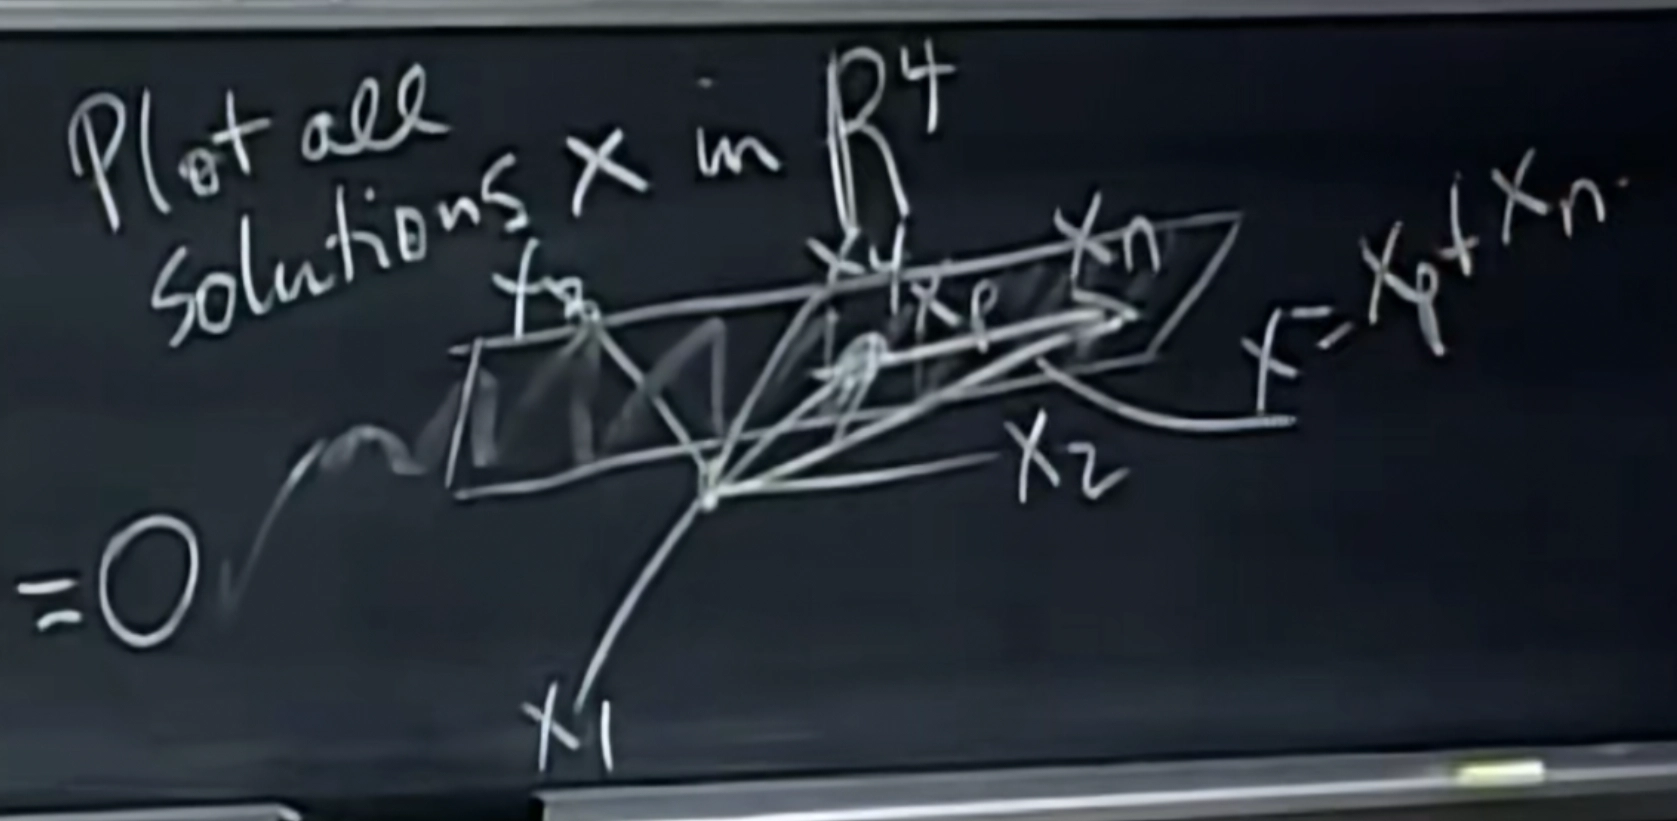 Plot all
solutions x in R⁴
x3
x4
xn
xp
x = xp + xn
x2
= 0
x1